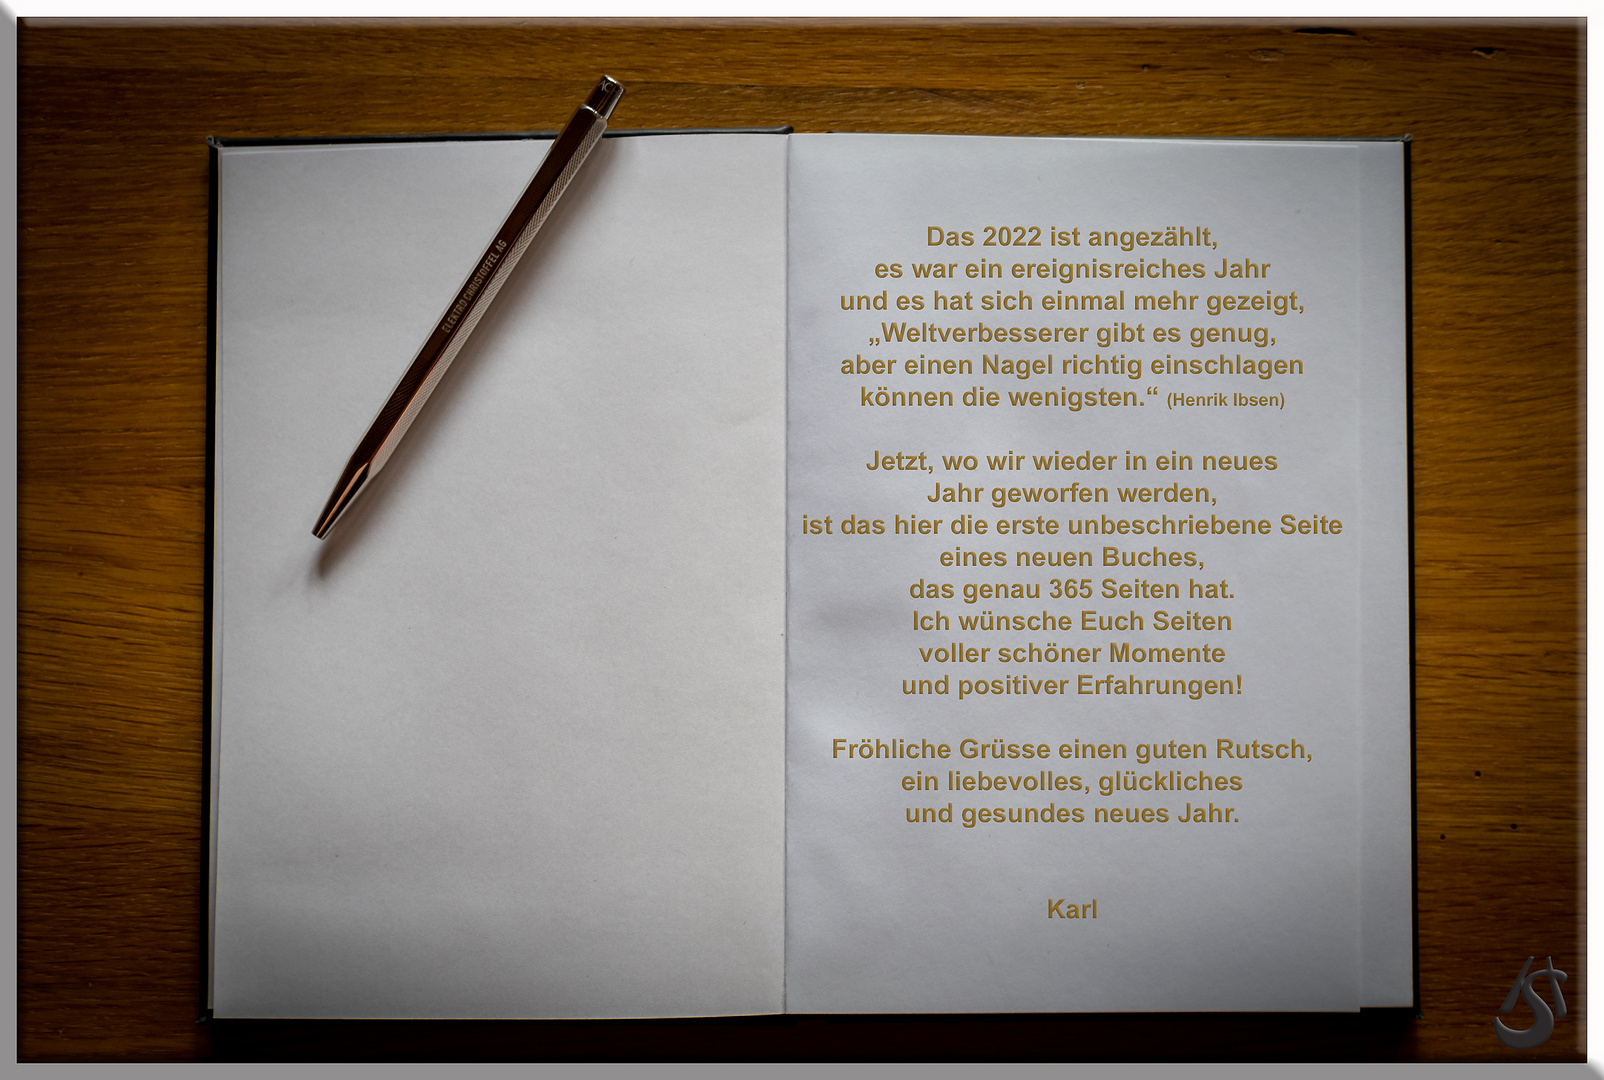 AC
ELEKTRO CHRISTOFFEL AG
Das 2022 ist angezählt,
es war ein ereignisreiches Jahr
und es hat sich einmal mehr gezeigt,
„Weltverbesserer gibt es genug,
aber einen Nagel richtig einschlagen
können die wenigsten.“ (Henrik Ibsen)
Jetzt, wo wir wieder in ein neues
Jahr geworfen werden,
ist das hier die erste unbeschriebene Seite
eines neuen Buches,
das genau 365 Seiten hat.
Ich wünsche Euch Seiten
voller schöner Momente
und positiver Erfahrungen!
Fröhliche Grüsse einen guten Rutsch,
ein liebevolles, glückliches
und gesundes neues Jahr.
Karl